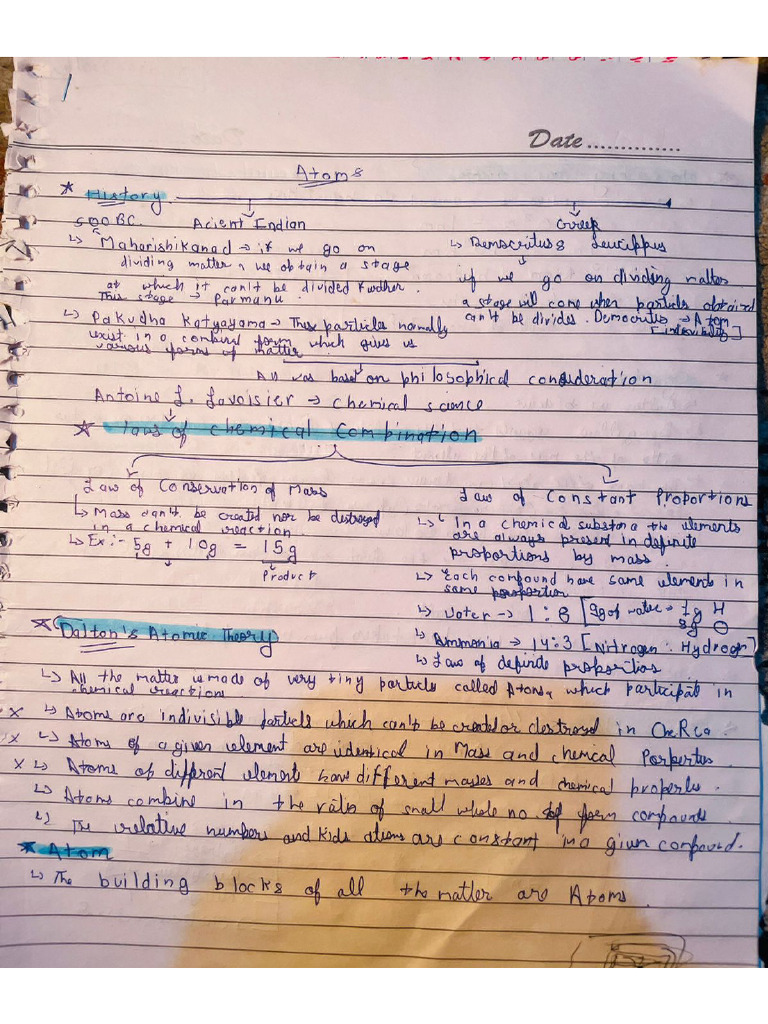 1
Date
Atoms
* History
500 BC. Acient Indian
Greek
↳ Maharishikanad → if we go on
dividing matter, we obtain a stage
at which it can't be divided further.
This stage → Parmanu.
↳ Pakudha Katyayama → These particles normally
exist in a combined form which gives us
various forms of matter.
↳ Democritus & Leucippus
if we go on dividing matter
a stage will come when particles obtained
can't be divides. Democritus → Atom
[indivisibility]
All was based on philosophical consideration
Antoine L. Lavoisier → chemical science
* laws of chemical Combination
Law of Conservation of Mass
↳ Mass can't be created nor be destroyed
in a chemical reaction.
↳ Ex:- 5g + 10g = 15g
Product
Law of Constant Proportions
↳ In a chemical substance the elements
are always present in definite
proportions by mass.
↳ Each compound have same elements in
same proportion
↳ Water → 1:8 [9g of water = 1g H
8g O
↳ Ammonia → 14:3 [Nitrogen : Hydrogen]
↳ Law of definite proportios
* Dalton's Atomic Theory
↳ All the matter is made of very tiny particles called Atoms, which participat in
chemical reactions
x ↳ Atoms are indivisible particles which can't be created or destroyed in
x ↳ Atoms of a given element are identical in Mass and chemical Porperties.
x ↳ Atoms of different elements have different masses and chemical properties.
↳ Atoms combine in the ratio of small whole no. to form compounds.
↳ The relative numbers and kids atoms are constant in a given compound.
* Atom
↳ The building blocks of all the matter are Atoms.